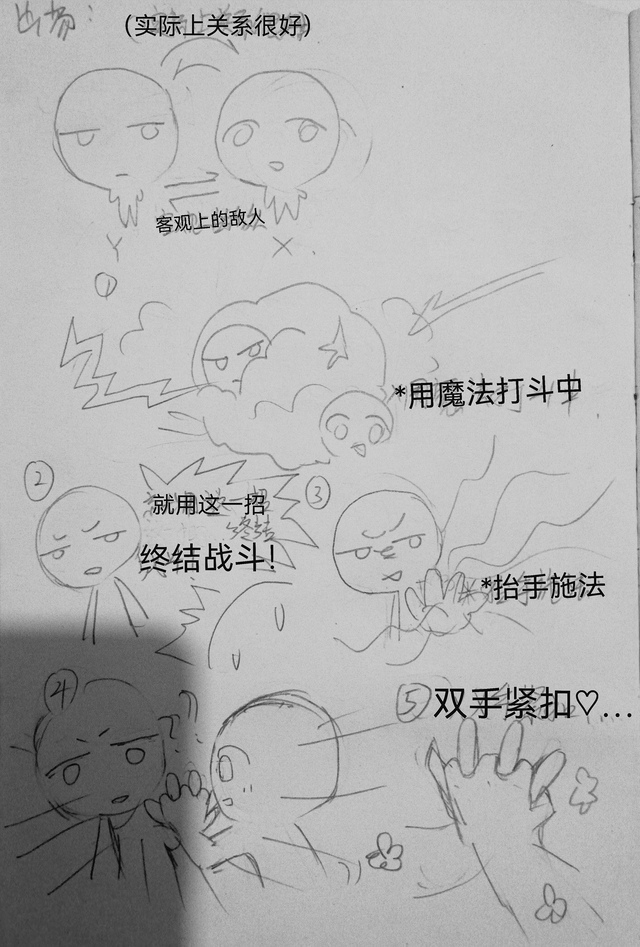 出场：
（实际上关系很好）
客观上的敌人
Y
X
①
*用魔法打斗中
②
就用这一招
终结
终结战斗！
③
*抬手施法
④
??
⑤ 双手紧扣♡...